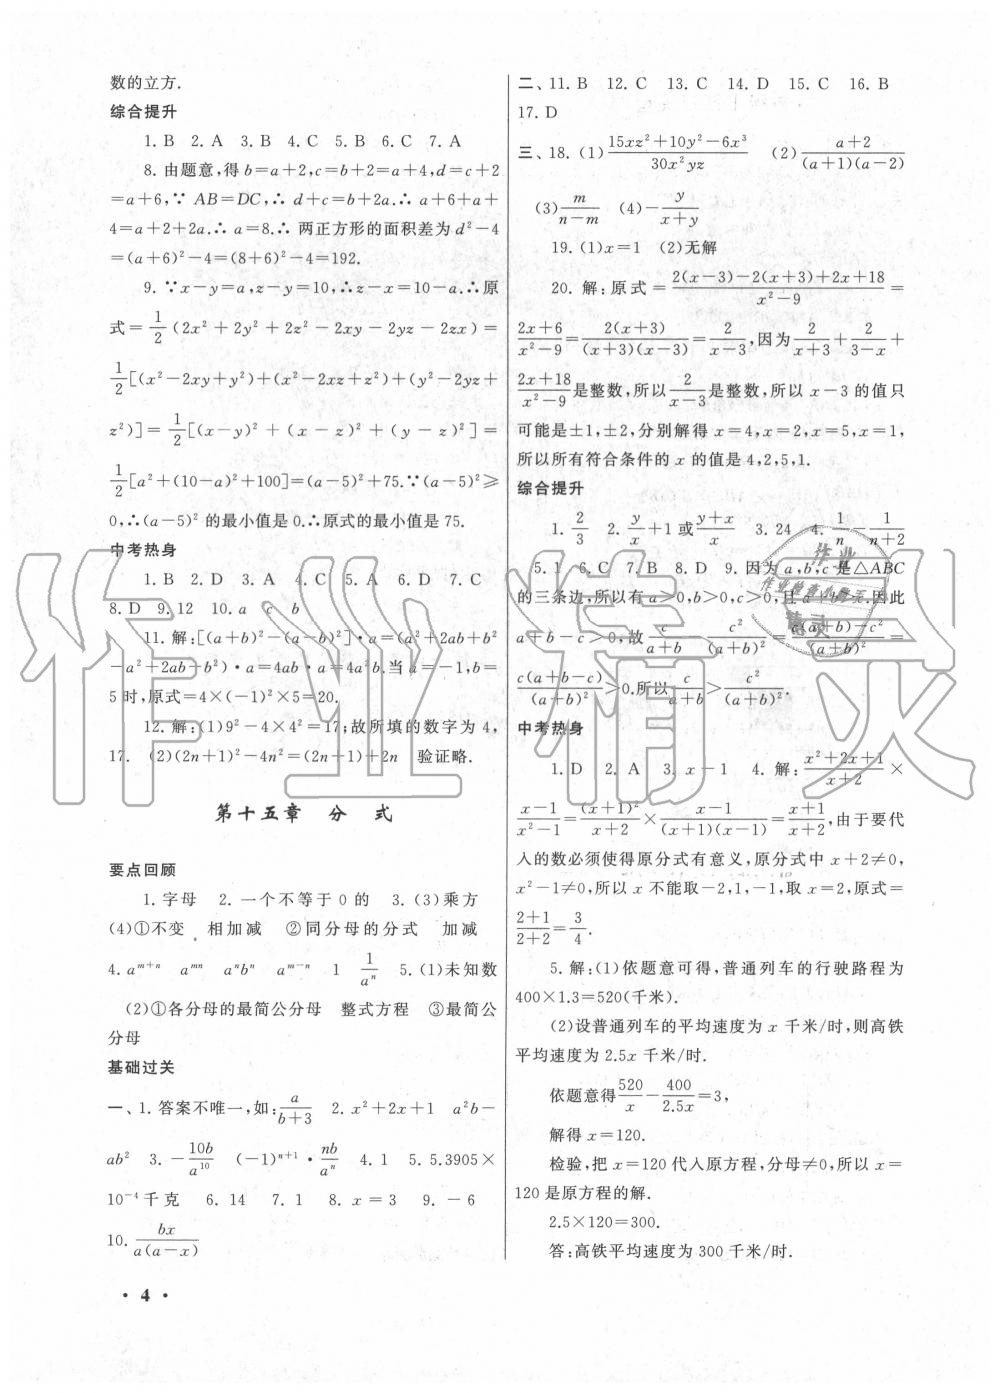 数的立方.
综合提升
1. B 2. A 3. B 4. C 5. B 6. C 7. A
8. 由题意,得 b=a+2,c=b+2=a+4,d=c+2
=a+6,∵ AB=DC,∴ d+c=b+2a.∴ a+6+a+
4=a+2+2a.∴ a=8.∴ 两正方形的面积差为 d²-4
=(a+6)²-4=(8+6)²-4=192.
9. ∵x-y=a,z-y=10,∴z-x=10-a.∴原
式=1/2(2x²+2y²+2z²-2xy-2yz-2zx)=
1/2[(x²-2xy+y²)+(x²-2xz+z²)+(y²-2yz+
z²)]=1/2[(x-y)²+(x-z)²+(y-z)²]=
1/2[a²+(10-a)²+100]=(a-5)²+75.∵(a-5)²≥
0,∴(a-5)² 的最小值是 0.∴原式的最小值是 75.
中考热身
1. B 2. D 3. A 4. B 5. C 6. D 7. C
8. D 9. 12 10. a c b
11. 解:[(a+b)²-(a-b)²]·a=(a²+2ab+b²
-a²+2ab-b²)·a=4ab·a=4a²b.当 a=-1,b=
5 时,原式=4×(-1)²×5=20.
12. 解:(1)9²-4×4²=17;故所填的数字为 4,
17. (2)(2n+1)²-4n²=(2n+1)+2n 验证略.
第十五章 分 式
要点回顾
1. 字母 2. 一个不等于 0 的 3. (3)乘方
(4)①不变 相加减 ②同分母的分式 加减
4. a^{m+n} a^{mn} a^n b^n a^{m-n} 1 1/a^n 5. (1)未知数
(2)①各分母的最简公分母 整式方程 ③最简公
分母
基础过关
一、1. 答案不唯一,如:a/(b+3) 2. x²+2x+1 a²b-
ab² 3. -10b/a^{10} (-1)^{n+1}·nb/a^n 4. 1 5. 5.3905×
10⁻⁴千克 6. 14 7. 1 8. x=3 9. -6
10. bx/(a(a-x))
· 4 ·
二、11. B 12. C 13. C 14. D 15. C 16. B
17. D
三、18. (1)(15xz²+10y²-6x³)/(30x²yz) (2)(a+2)/((a+1)(a-2))
(3)m/(n-m) (4)-y/(x+y)
19. (1)x=1 (2)无解
20. 解:原式=(2(x-3)-2(x+3)+2x+18)/(x²-9)=
(2x+6)/(x²-9)=2(x+3)/((x+3)(x-3))=2/(x-3),因为2/(x+3)+2/(3-x)+
(2x+18)/(x²-9)是整数,所以2/(x-3)是整数,所以 x-3 的值只
可能是±1,±2,分别解得 x=4,x=2,x=5,x=1,
所以所有符合条件的 x 的值是 4,2,5,1.
综合提升
1. 2/3 2. y/x+1 或(y+x)/x 3. 24 4. 1/n-1/(n+2)
5. 1 6. C 7. B 8. D 9. 因为 a,b,c 是△ABC
的三条边,所以有 a>0,b>0,c>0,且 a+b>c.因此
a+b-c>0,故c/(a+b)-c²/(a+b)²=(c(a+b)-c²)/(a+b)²=
c(a+b-c)/(a+b)²>0.所以c/(a+b)>c²/(a+b)².
中考热身
1. D 2. A 3. x-1 4. 解:(x²+2x+1)/(x+2)×
(x-1)/(x²-1)=(x+1)²/(x+2)×(x-1)/((x+1)(x-1))=(x+1)/(x+2),由于要代
人的数必须使得原分式有意义,原分式中 x+2≠0,
x²-1≠0,所以 x 不能取-2,1,-1,取 x=2,原式=
(2+1)/(2+2)=3/4.
5. 解:(1)依题意可得,普通列车的行驶路程为
400×1.3=520(千米).
(2)设普通列车的平均速度为 x 千米/时,则高铁
平均速度为 2.5x 千米/时.
依题意得520/x-400/2.5x=3,
解得 x=120.
检验,把 x=120 代入原方程,分母≠0,所以 x=
120 是原方程的解.
2.5×120=300.
答:高铁平均速度为 300 千米/时.
作业精灵